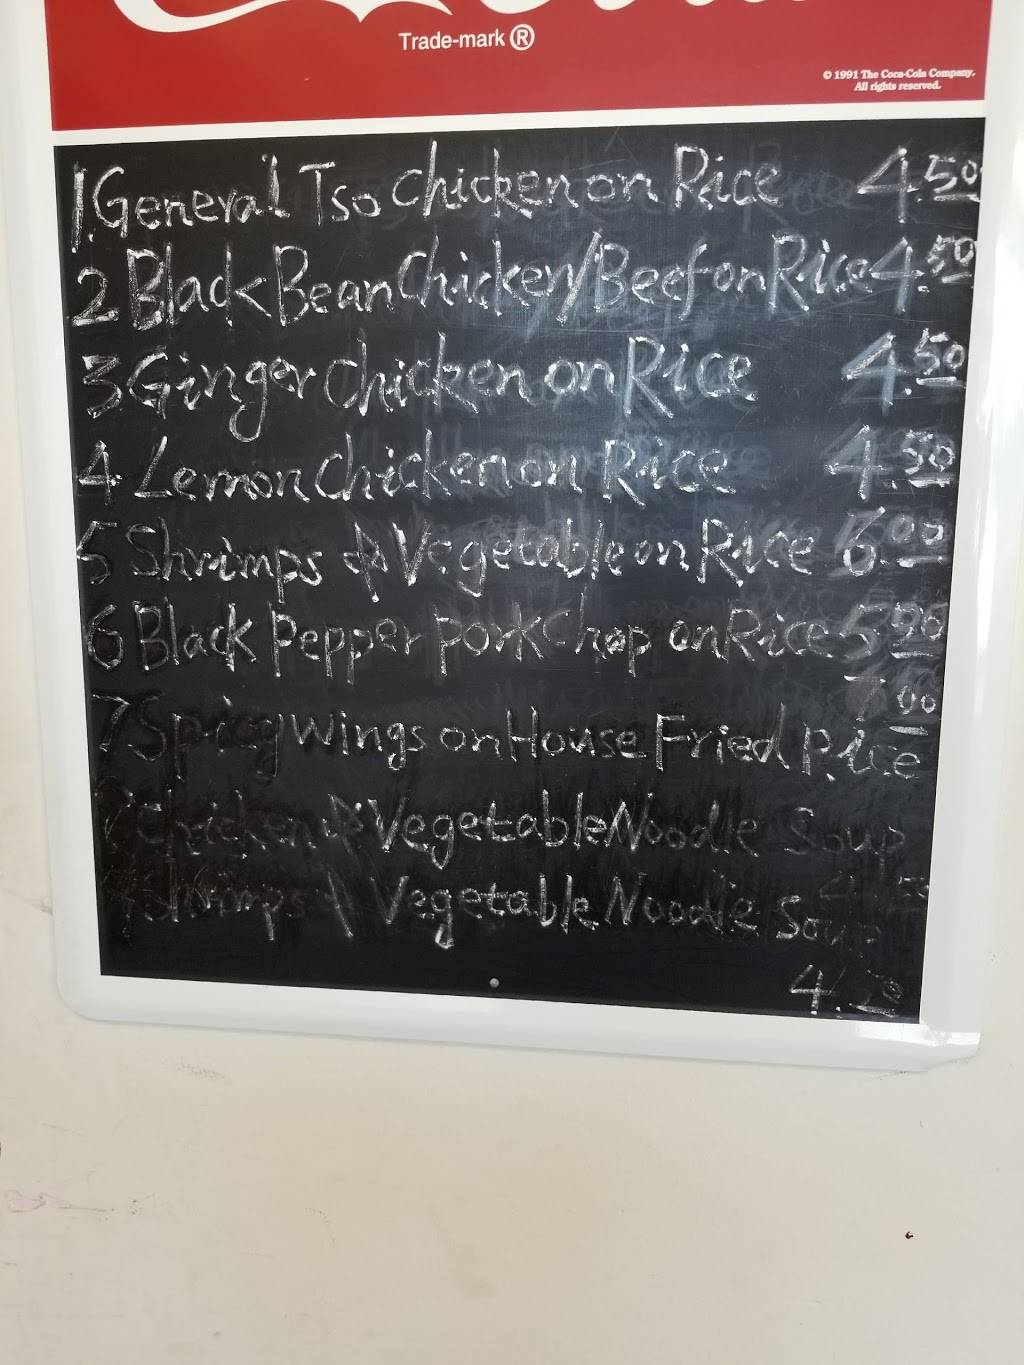 Trade-mark ®
© 1991 The Coca-Cola Company.
All rights reserved.
1. General Tso Chicken on Rice 4.50
2 Black Bean Chicken/Beef on Rice 4.50
3 Ginger Chicken on Rice 4.50
4 Lemon Chicken on Rice 4.50
5 Shrimps & Vegetable on Rice 6.00
6 Black Pepper Pork Chop on Rice 5.00
7.00
7 Spicy Wings on House Fried Rice
Chicken & Vegetable Noodle Soup
Shrimps & Vegetable Noodle Soup